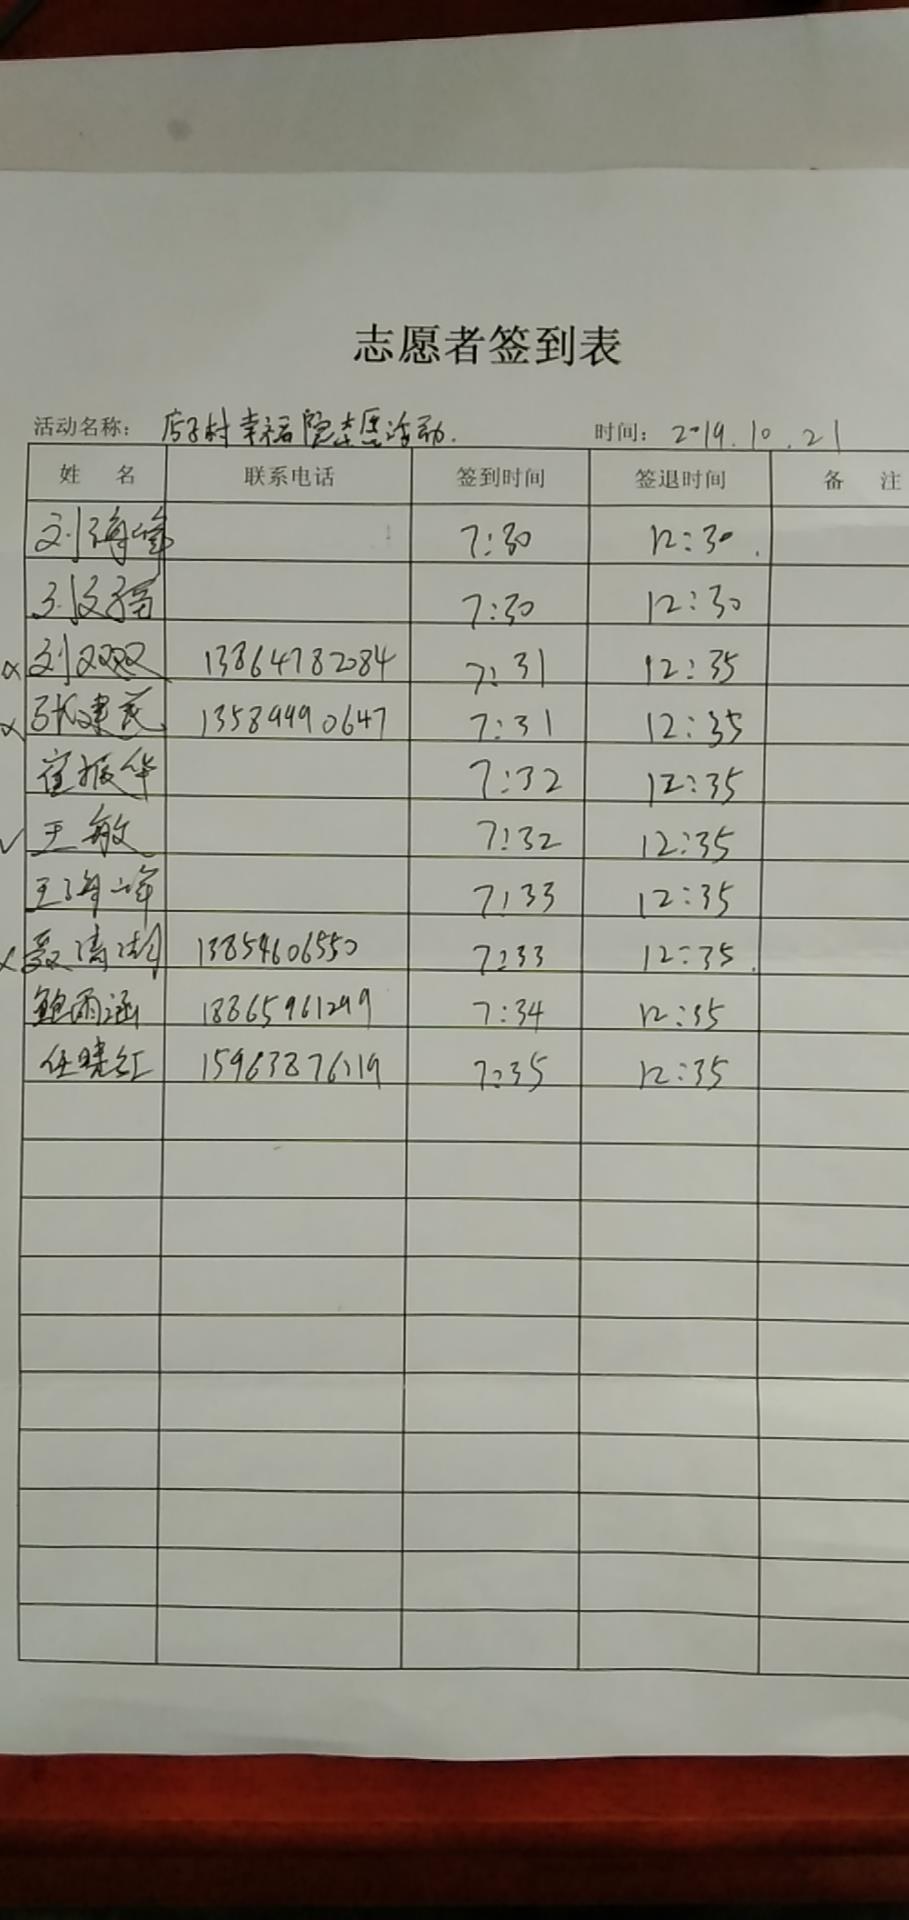 志愿者签到表
活动名称： 店子村幸福院志愿活动. 时间： 2019.10.21
姓 名 联系电话 签到时间 签退时间 备 注
刘海峰 7:30 12:30.
7:30 12:30
刘双双 13864782084 7:31 12:35
张建民 13589990647 7:31 12:35
崔振华 7:32 12:35
√ 王敏 7:32 12:35
王海峰 7:33 12:35
聂清 13854606550 7:33 12:35.
鲍雨涵 18865961299 7:34 12:35
任晓红 15963876119 7:35 12:35